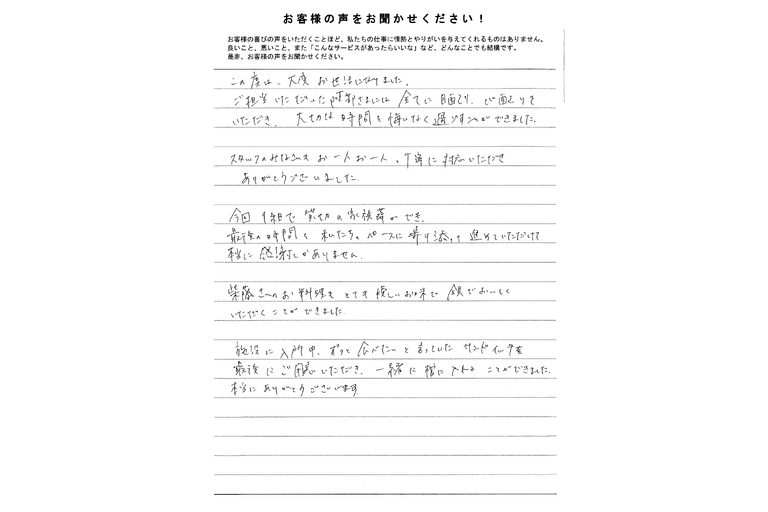 お客様の声をお聞かせください！
お客様の喜びの声をいただくことほど、私たちの仕事に情熱とやりがいを与えてくれるものはありません。
良いこと、悪いこと、また「こんなサービスがあったらいいな」など、どんなことでも結構です。
是非、お客様の声をお聞かせください。
この度は、大変お世話になりました。
ご担当いただいた阿部さまには全てに目配り、心配りを
いただき、大切な時間を悔いなく過ごすことができました。
スタッフのみなさまもお一人お一人、丁寧に対応いただき
ありがとうございました
今回1組で貸切の家族葬ができ、
最後の時間を私たちのペースに寄り添って進めていただけて
本当に感謝しかありません。
柴藤さんのお料理もとても優しいお味で全員でおいしく
いただくことができました
施設に入所中、ずっと食べたいと言っていたサンドイッチを
最後にご用意いただき、一緒に棺に入れることができました。
本当にありがとうございます